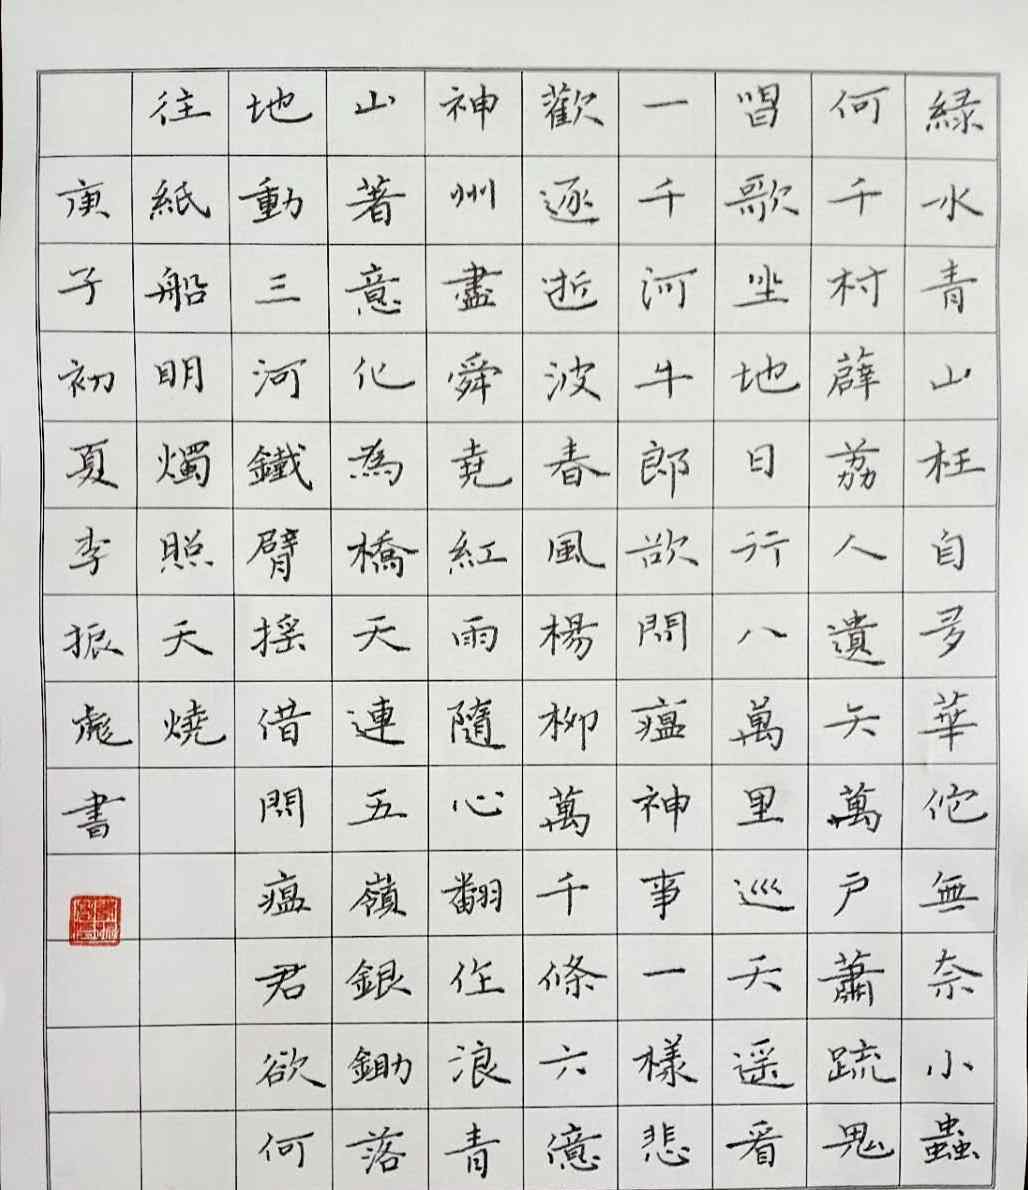 緑水青山枉自多華佗無奈小蟲
何千村薜荔人遺矢萬戶蕭疏鬼
唱歌坐地日行八萬里巡天遥看
一千河牛郎欲問瘟神事一樣悲
歡逐逝波春風楊柳萬千條六億
神州盡舜堯紅雨隨心翻作浪青
山著意化為橋天連五嶺銀鋤落
地動三河鐵臂摇借問瘟君欲何
往紙船明燭照天燒
庚子初夏李振彪書